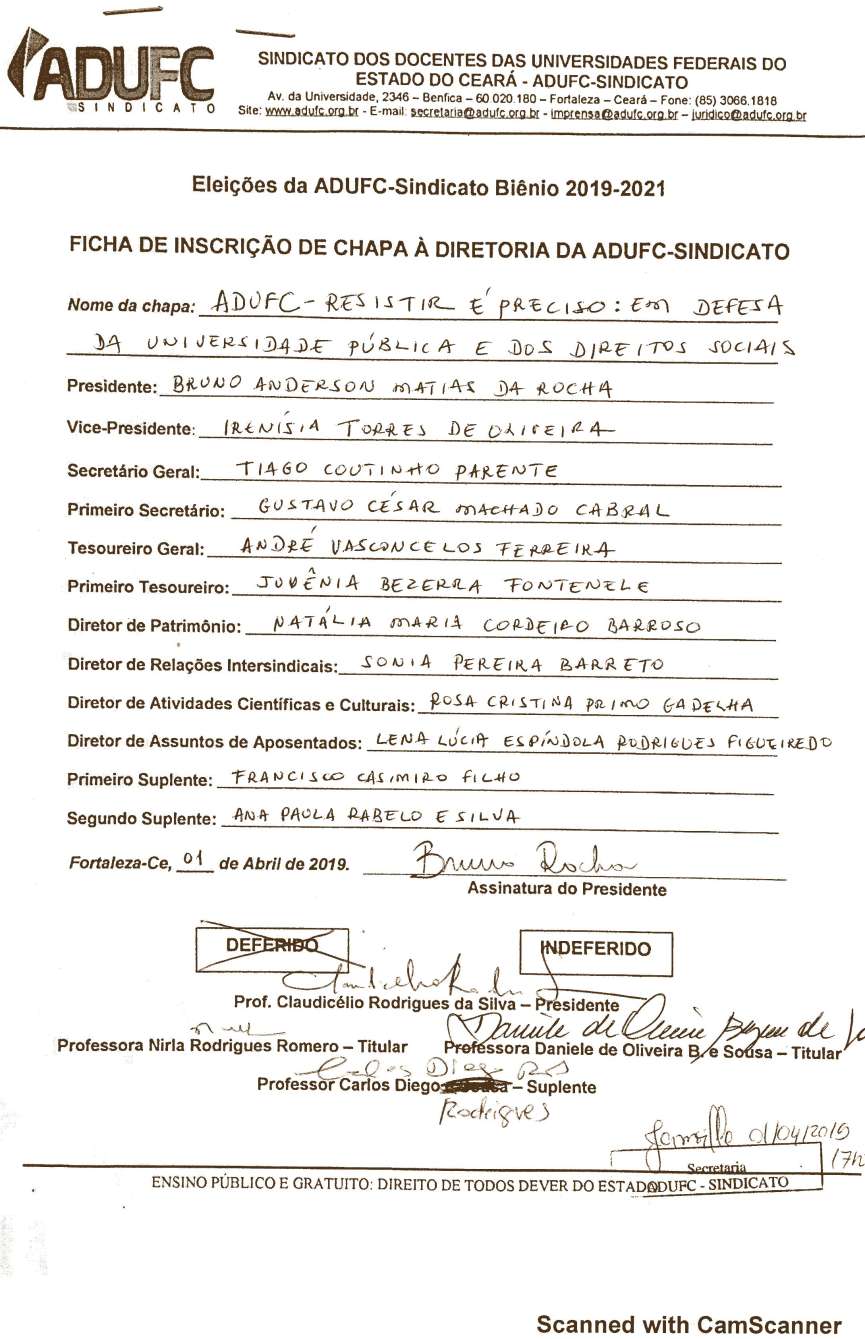 ADUFC
SINDICATO
SINDICATO DOS DOCENTES DAS UNIVERSIDADES FEDERAIS DO
ESTADO DO CEARÁ - ADUFC-SINDICATO
Av. da Universidade, 2346 – Benfica – 60.020.180 – Fortaleza – Ceará – Fone: (85) 3066.1818
Site: www.adufc.org.br - E-mail: secretaria@adufc.org.br - imprensa@adufc.org.br – juridico@adufc.org.br
Eleições da ADUFC-Sindicato Biênio 2019-2021
FICHA DE INSCRIÇÃO DE CHAPA À DIRETORIA DA ADUFC-SINDICATO
Nome da chapa: ADUFC - RESISTIR É PRECISO: EM DEFESA
DA UNIVERSIDADE PÚBLICA E DOS DIREITOS SOCIAIS
Presidente: BRUNO ANDERSON MATIAS DA ROCHA
Vice-Presidente: IRENÍSIA TORRES DE OLIVEIRA
Secretário Geral: TIAGO COUTINHO PARENTE
Primeiro Secretário: GUSTAVO CÉSAR MACHADO CABRAL
Tesoureiro Geral: ANDRÉ VASCONCELOS FERREIRA
Primeiro Tesoureiro: JUVÊNIA BEZERRA FONTENELE
Diretor de Patrimônio: NATÁLIA MARIA CORDEIRO BARROSO
Diretor de Relações Intersindicais: SONIA PEREIRA BARRETO
Diretor de Atividades Científicas e Culturais: ROSA CRISTINA PRIMO GADELHA
Diretor de Assuntos de Aposentados: LENA LÚCIA ESPÍNDOLA RODRIGUES FIGUEIREDO
Primeiro Suplente: FRANCISCO CASIMIRO FILHO
Segundo Suplente: ANA PAULA RABELO E SILVA
Fortaleza-Ce, 01 de Abril de 2019. Bruno Rocha
Assinatura do Presidente
DEFERIDO INDEFERIDO
Prof. Claudicélio Rodrigues da Silva – Presidente
Daniele de Oliveira Bezerra de
Professora Nirla Rodrigues Romero – Titular Professora Daniele de Oliveira B. e Sousa – Titular
Carlos Diego
Professor Carlos Diego – Suplente
Rodrigues
01/04/2019
17h
Secretaria
ENSINO PÚBLICO E GRATUITO: DIREITO DE TODOS DEVER DO ESTADO ADUFC - SINDICATO
Scanned with CamScanner